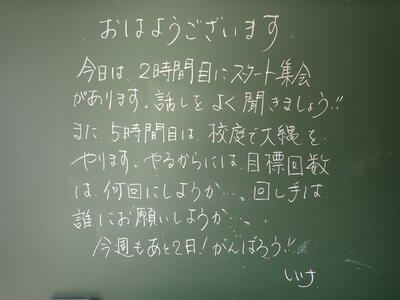 おはようございます
今日は、2時間目にスタート集会
があります。話しをよく聞きましょう!!
また、5時間目は、校庭で大縄を
やります。やるからには、目標回数
は、何回にしようか…。回し手は
誰にお願いしようか…。
今週もあと2日!がんばろう!!